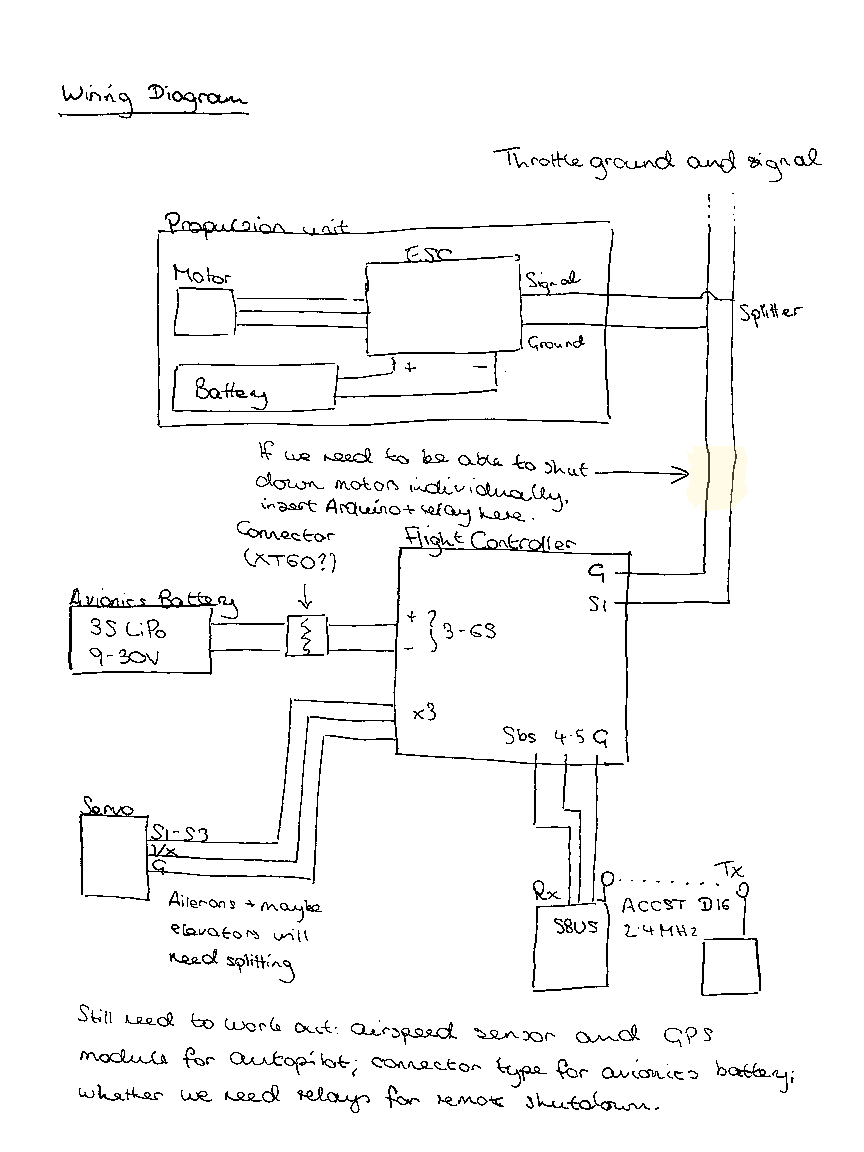 Wiring Diagram
Throttle ground and signal
Propulsion unit
ESC
Motor
Signal
Splitter
Ground
+ -
Battery
If we need to be able to shut
down motors individually,
insert Arduino + relay here.
Connector
(XT60?)
Flight Controller
G
S1
Avionics Battery
3S LiPo
9-30V
+
-
3-6S
x3
Sbs 4.5 G
Servo
S1-S3
Vx
G
Ailerons + maybe
elevators will
need splitting
Rx
Tx
SBUS
ACCST D16
2.4MHz
Still need to work out: airspeed sensor and GPS
module for autopilot; connector type for avionics battery;
whether we need relays for remote shutdown.